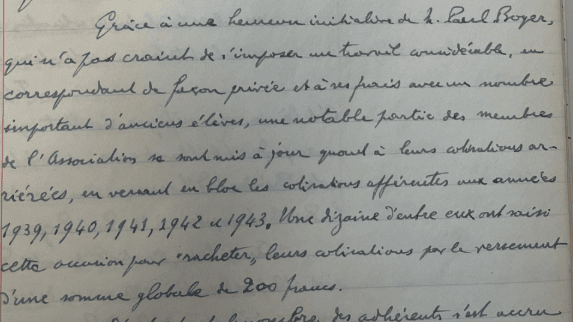 Grâce à une heureuse initiative de M. Paul Boyer,
qui n'a pas craint de s'imposer un travail considérable, en
correspondant de façon privée et à ses frais avec un nombre
important d'anciens élèves, une notable partie des membres
de l'Association se sont mis à jour quant à leurs cotisations ar-
riérées, en versant en bloc les cotisations afférentes aux années
1939, 1940, 1941, 1942 et 1943. Une dizaine d'entre eux ont saisi
cette occasion pour "racheter" leurs cotisations par le versement
d'une somme globale de 200 francs.
nombre des adhérents s'est accru